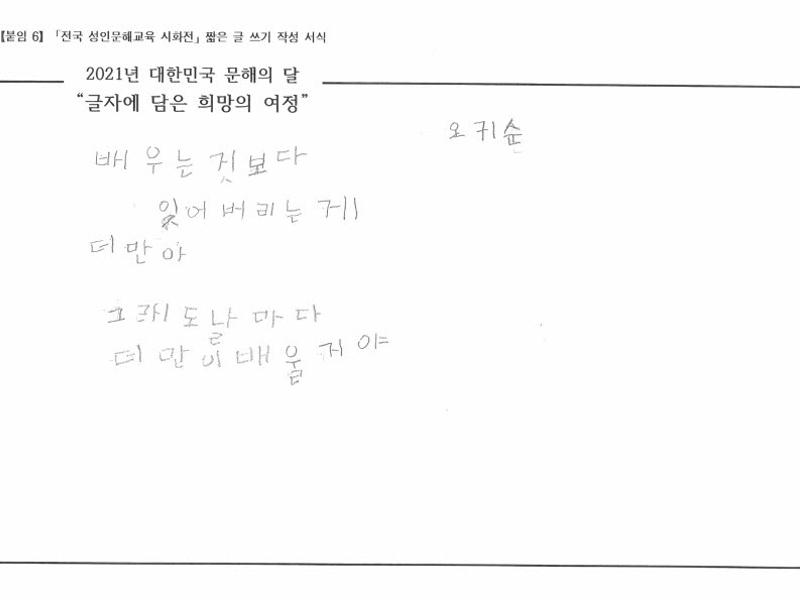 【붙임 6】 「전국 성인문해교육 시화전」 짧은 글 쓰기 작성 서식
2021년 대한민국 문해의 달
“글자에 담은 희망의 여정”
오귀순
배우는 것보다
잊어버리는 게
더만아
그래도 날마다
더 만이 배울거야